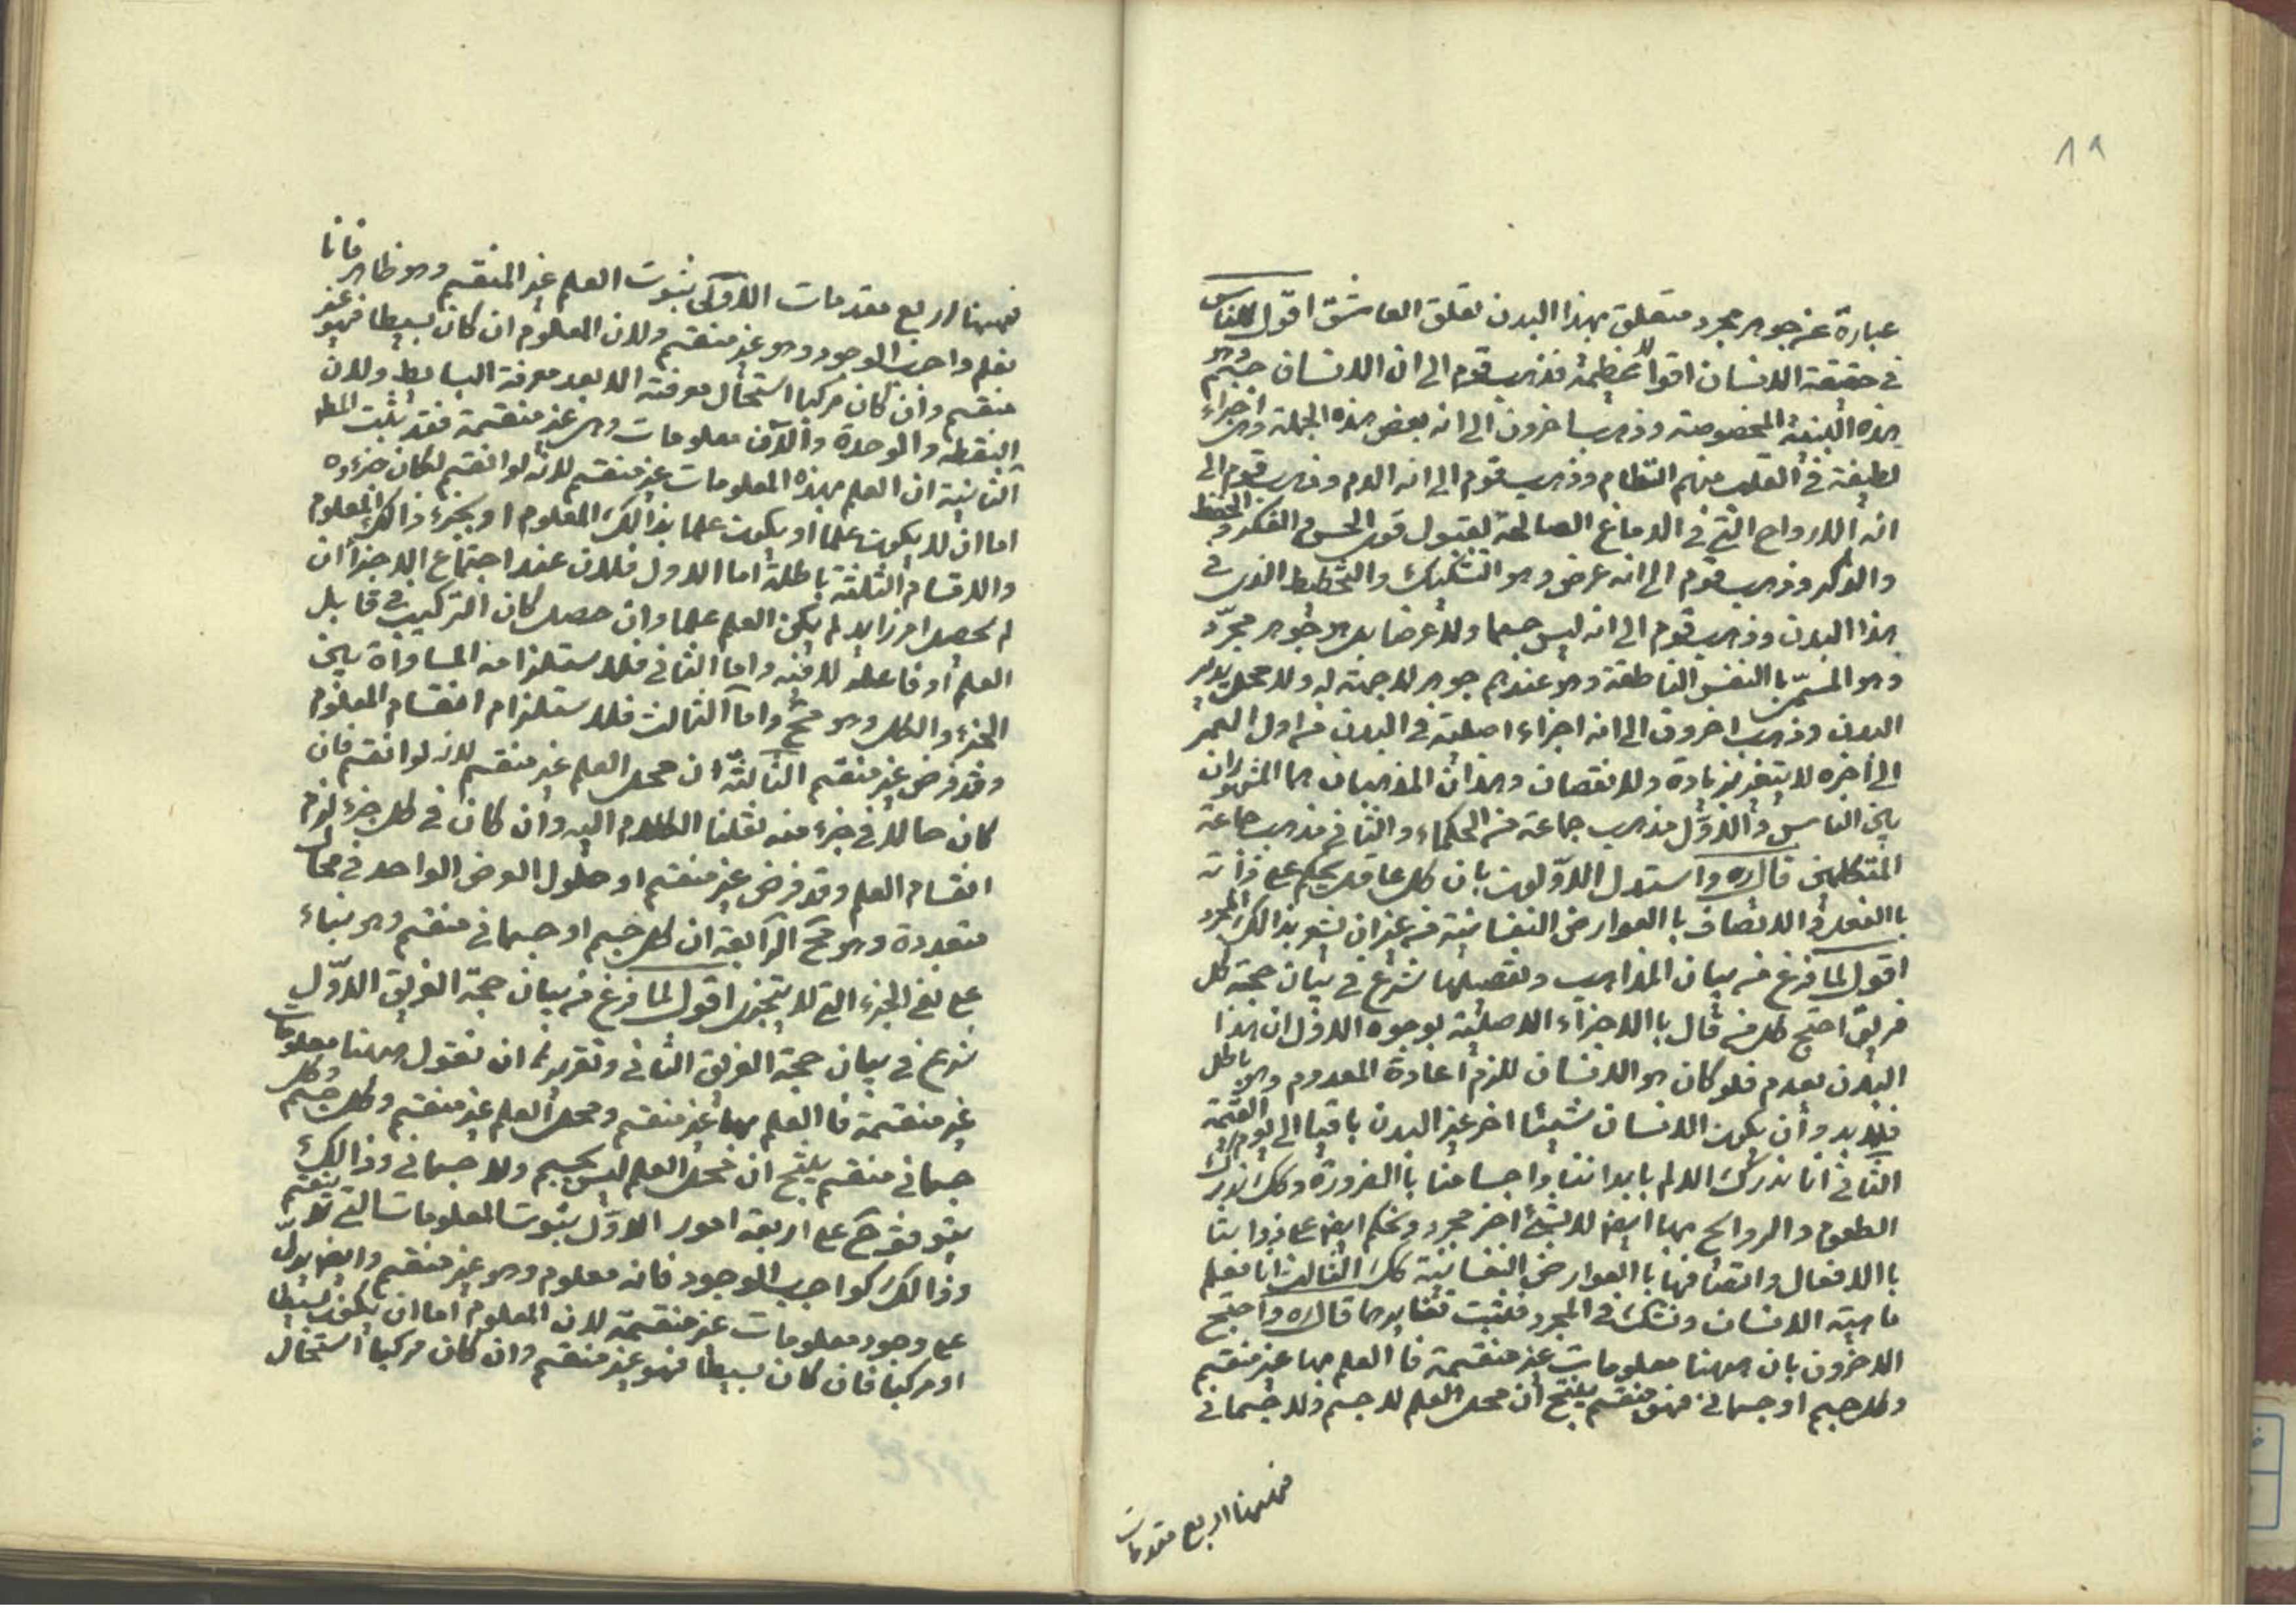 ١٩
عبارة عن جوهر مجرد متعلق بهذا البدن تعلق العاشق اقول للناس
في حقيقة الانسان اقوالا عظيمة فذهب قوم الى ان الانسان جسم وهو
هذه البنية المخصوصة وذهب اخرون الى انه بعض هذه الجملة وهى اجزاء
لطيفة في القلب منهم النظام وذهب قوم الى انه الدم وذهب قوم الى
انه الارواح التي في الدماغ الصالحة لقبول قوى الحس والفكر والحفظ
والذكر وذهب قوم الى انه عرض وهو التشكيك والتخطيط الذى في
هذا البدن وذهب قوم الى انه ليس جسما ولا عرضا بل هو جوهر مجرّد
وهو المسمّى باالنفس الناطقة وهو عندهم جوهر لا جهة له ولا محل يدبر
البدن وذهب اخرون الى انه اجزاء اصلية في البدن من اول العمر
الى اخره لا يتغير بزيادة ولا نقصان وهذان المذهبان هما المشهوران
بين الناس والاوّل مذهب جماعة من الحكماء والثاني مذهب جماعة
المتكلمين قال ره واستدل الاوّلون بان كل عاقل يحكم على ذاته
باالفعل والاتصاف باالعوارض النفسانية من غير ان يشعر بذالك المجرد
اقول لما فرغ من بيان المذاهب وتفصيلها شرع في بيان حجة كل
فريق احتج كل من قال باالاجزاء الاصلية بوجوه الاوّل ان هذا
البدن يعدم فلو كان هو الانسان للزم اعادة المعدوم وهو باطل
فلابد وأن يكون الانسان شيئا اخر غير البدن باقيا الى يوم القيمة
الثاني انا ندرك الالم بابداننا واجسامنا باالضرورة وكك ندرك
الطعوم والروائح بها ايض لا بشئ اخر مجرد ونحكم ايض على ذواتنا
باالافعال واتصافها باالعوارض النفسانية كك الثالث انا نعلم
ماهية الانسان ونشك في المجرد فلثبت تغايرهما قال ره واحتج
الاخرون بان ههنا معلومات غير منقسمة فاالعلم بها غير منقسم
وكل جسم او جسماني فهو منقسم ينتج ان محل العلم لا جسم ولا جسماني
فههنا اربع مقدمات
فههنا اربع مقدمات الاولى بثبوت العلم غير المنقسم وهو ظاهر فانا
نعلم واجب الوجود وهو غير منقسم ولان المعلوم ان كان بسيطا فهو غير
منقسم وان كان مركبا استحال معرفته الا بعد معرفة البسائط ولان
النقطة والوحدة والآن معلومات وهى غير منقسمة فقد يثبت المط
الثانية ان العلم بهذه المعلومات غير منقسم لانه لو انقسم لكان جزءوه
اما ان لا يكون علما أو يكون علما بذالك المعلوم او بجزء ذالك المعلوم
والاقسام الثلثة باطلة اما الاول فلان عند اجتماع الاجزاء ان
لم يحصل امر زايد لم يكن العلم علما وان حصل كان التركيب في قابل
العلم أو فاعله لا فيه واما الثاني فلاستلزامه المساواة بين
الجزء والكل وهو مح واما الثالث فلاستلزام انقسام المعلوم
وقد فرض غير منقسم الثالثة ان محل العلم غير منقسم لانه لو انقسم فان
كان حالا في جزء منه نقلنا الكلام اليه وان كان في كل جزء لزم
انقسام العلم وقد فرض غير منقسم او حلول العرض الواحد في محال
متعددة وهو مح الرابعة ان كل جسم او جسماني منقسم وهو بناء
على نفي الجزء التي لا يتجزى اقول لما فرغ من بيان حجة الفريق الاوّل
شرع في بيان حجة الفريق الثاني وتقريره ان نقول ههنا معلومات
غير منقسمة فاالعلم بها غير منقسم ومحل العلم غير منقسم وكل جسم وكل
جسماني منقسم ينتج ان محل العلم ليس بجسم ولا جسماني وذالك
يتوقف ح على اربعة امور الاوّل بثبوت المعلومات التي لا ينقسم
وذالك كواجب الوجود فانه معلوم وهو غير منقسم وايض يدلّ
على وجود معلومات غير منقسمة لان المعلوم اما ان يكون بسيطا
او مركبا فان كان بسيطا فهو غير منقسم وان كان مركبا استحال